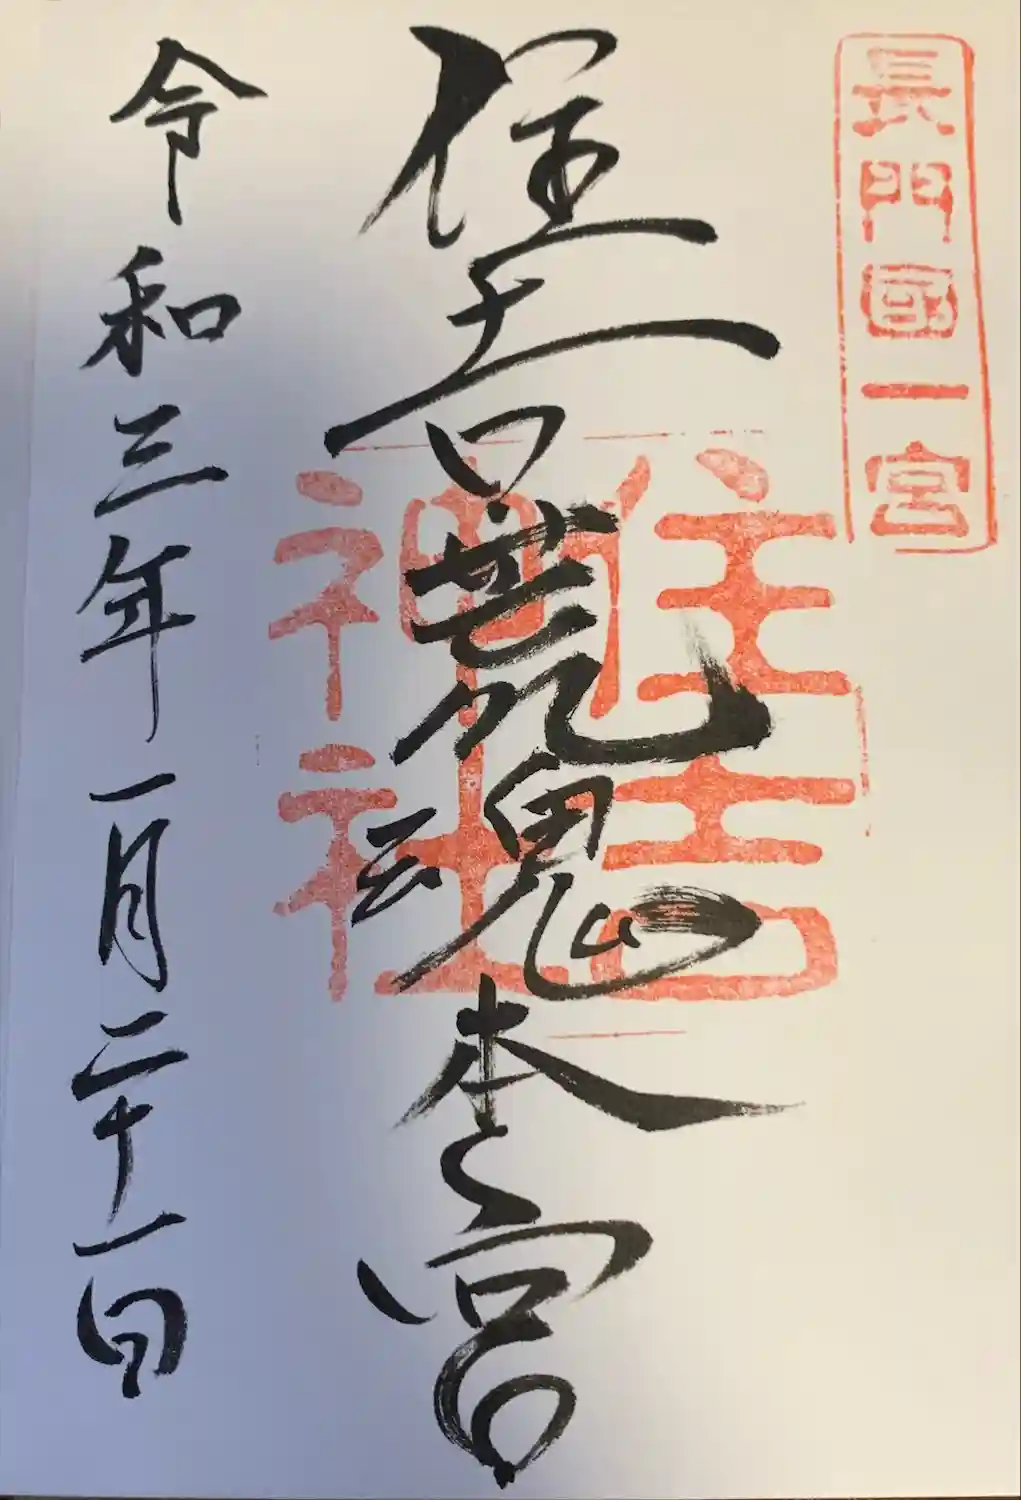 長門國一宮
住吉荒魂本宮
住吉
神社
令和三年一月二十一日